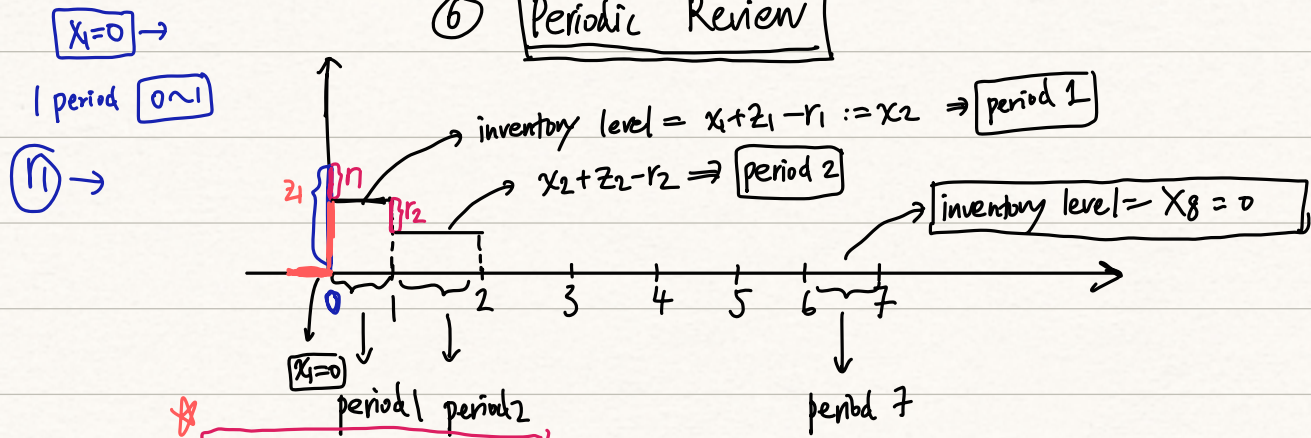 ⑥ Periodic Review
x₁=0 →
1 period 0~1
r₁ →
inventory level = x₁+z₁-r₁ := x₂ ⇒ period 1
x₂+z₂-r₂ ⇒ period 2
inventory level = x₈ = 0
z₁ r₁
r₂
0 1 2 3 4 5 6 7
x₁=0
period 1 period 2 period 7